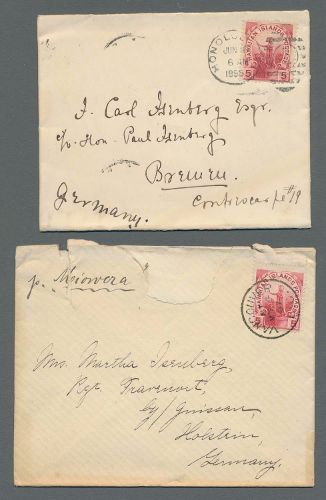 HONOLU
JUN
6 AM
1895
HAWAIIAN ISLANDS POSTAGE
5 5
J. Carl Isenberg Esqr.
c/o Hon. Paul Isenberg
Bremen.
Germany.
Contrescarpe #19
p. "Miowera"
VANCOUVER
HAWAIIAN ISLANDS POSTAGE
Mrs. Martha Isenberg
Rgt. Travenort,
b/ Gnissau,
Holstein,
Germany.